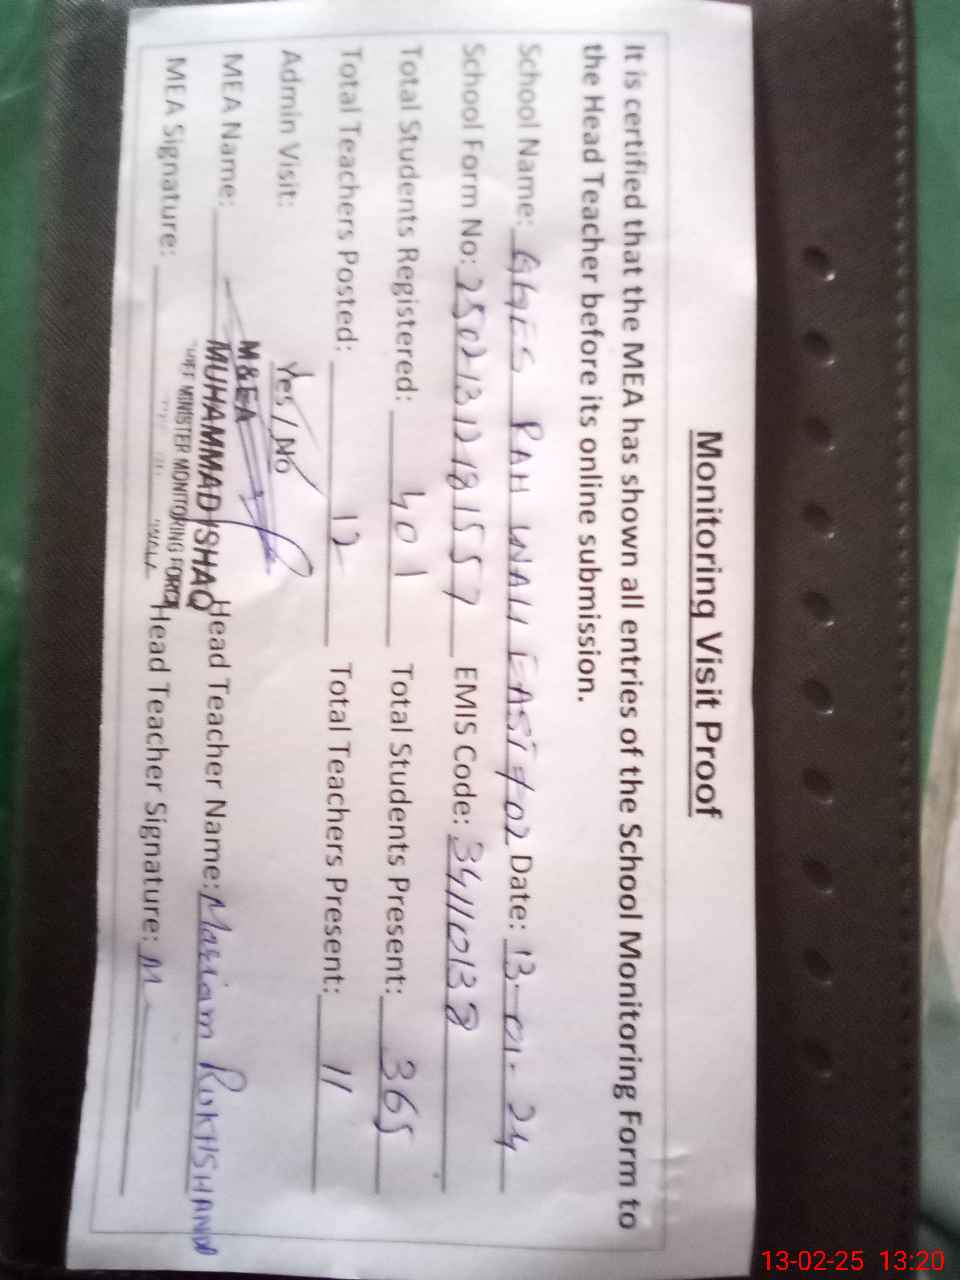 Monitoring Visit Proof
It is certified that the MEA has shown all entries of the School Monitoring Form to
the Head Teacher before its online submission.
School Name: GGES PAH WALI EAST +02 Date: 13-01-24
School Form No: 2502131218157 EMIS Code: 34110138
Total Students Registered: 401 Total Students Present: 365
Total Teachers Posted: 12 Total Teachers Present: 11
Admin Visit: Yes / No
M&EA
MEA Name: MUHAMMAD ISHAQ Head Teacher Name: Mariam RUKHSHANDA
MINISTER MONITORING FORCE
MEA Signature: Head Teacher Signature: M
13-02-25 13:20